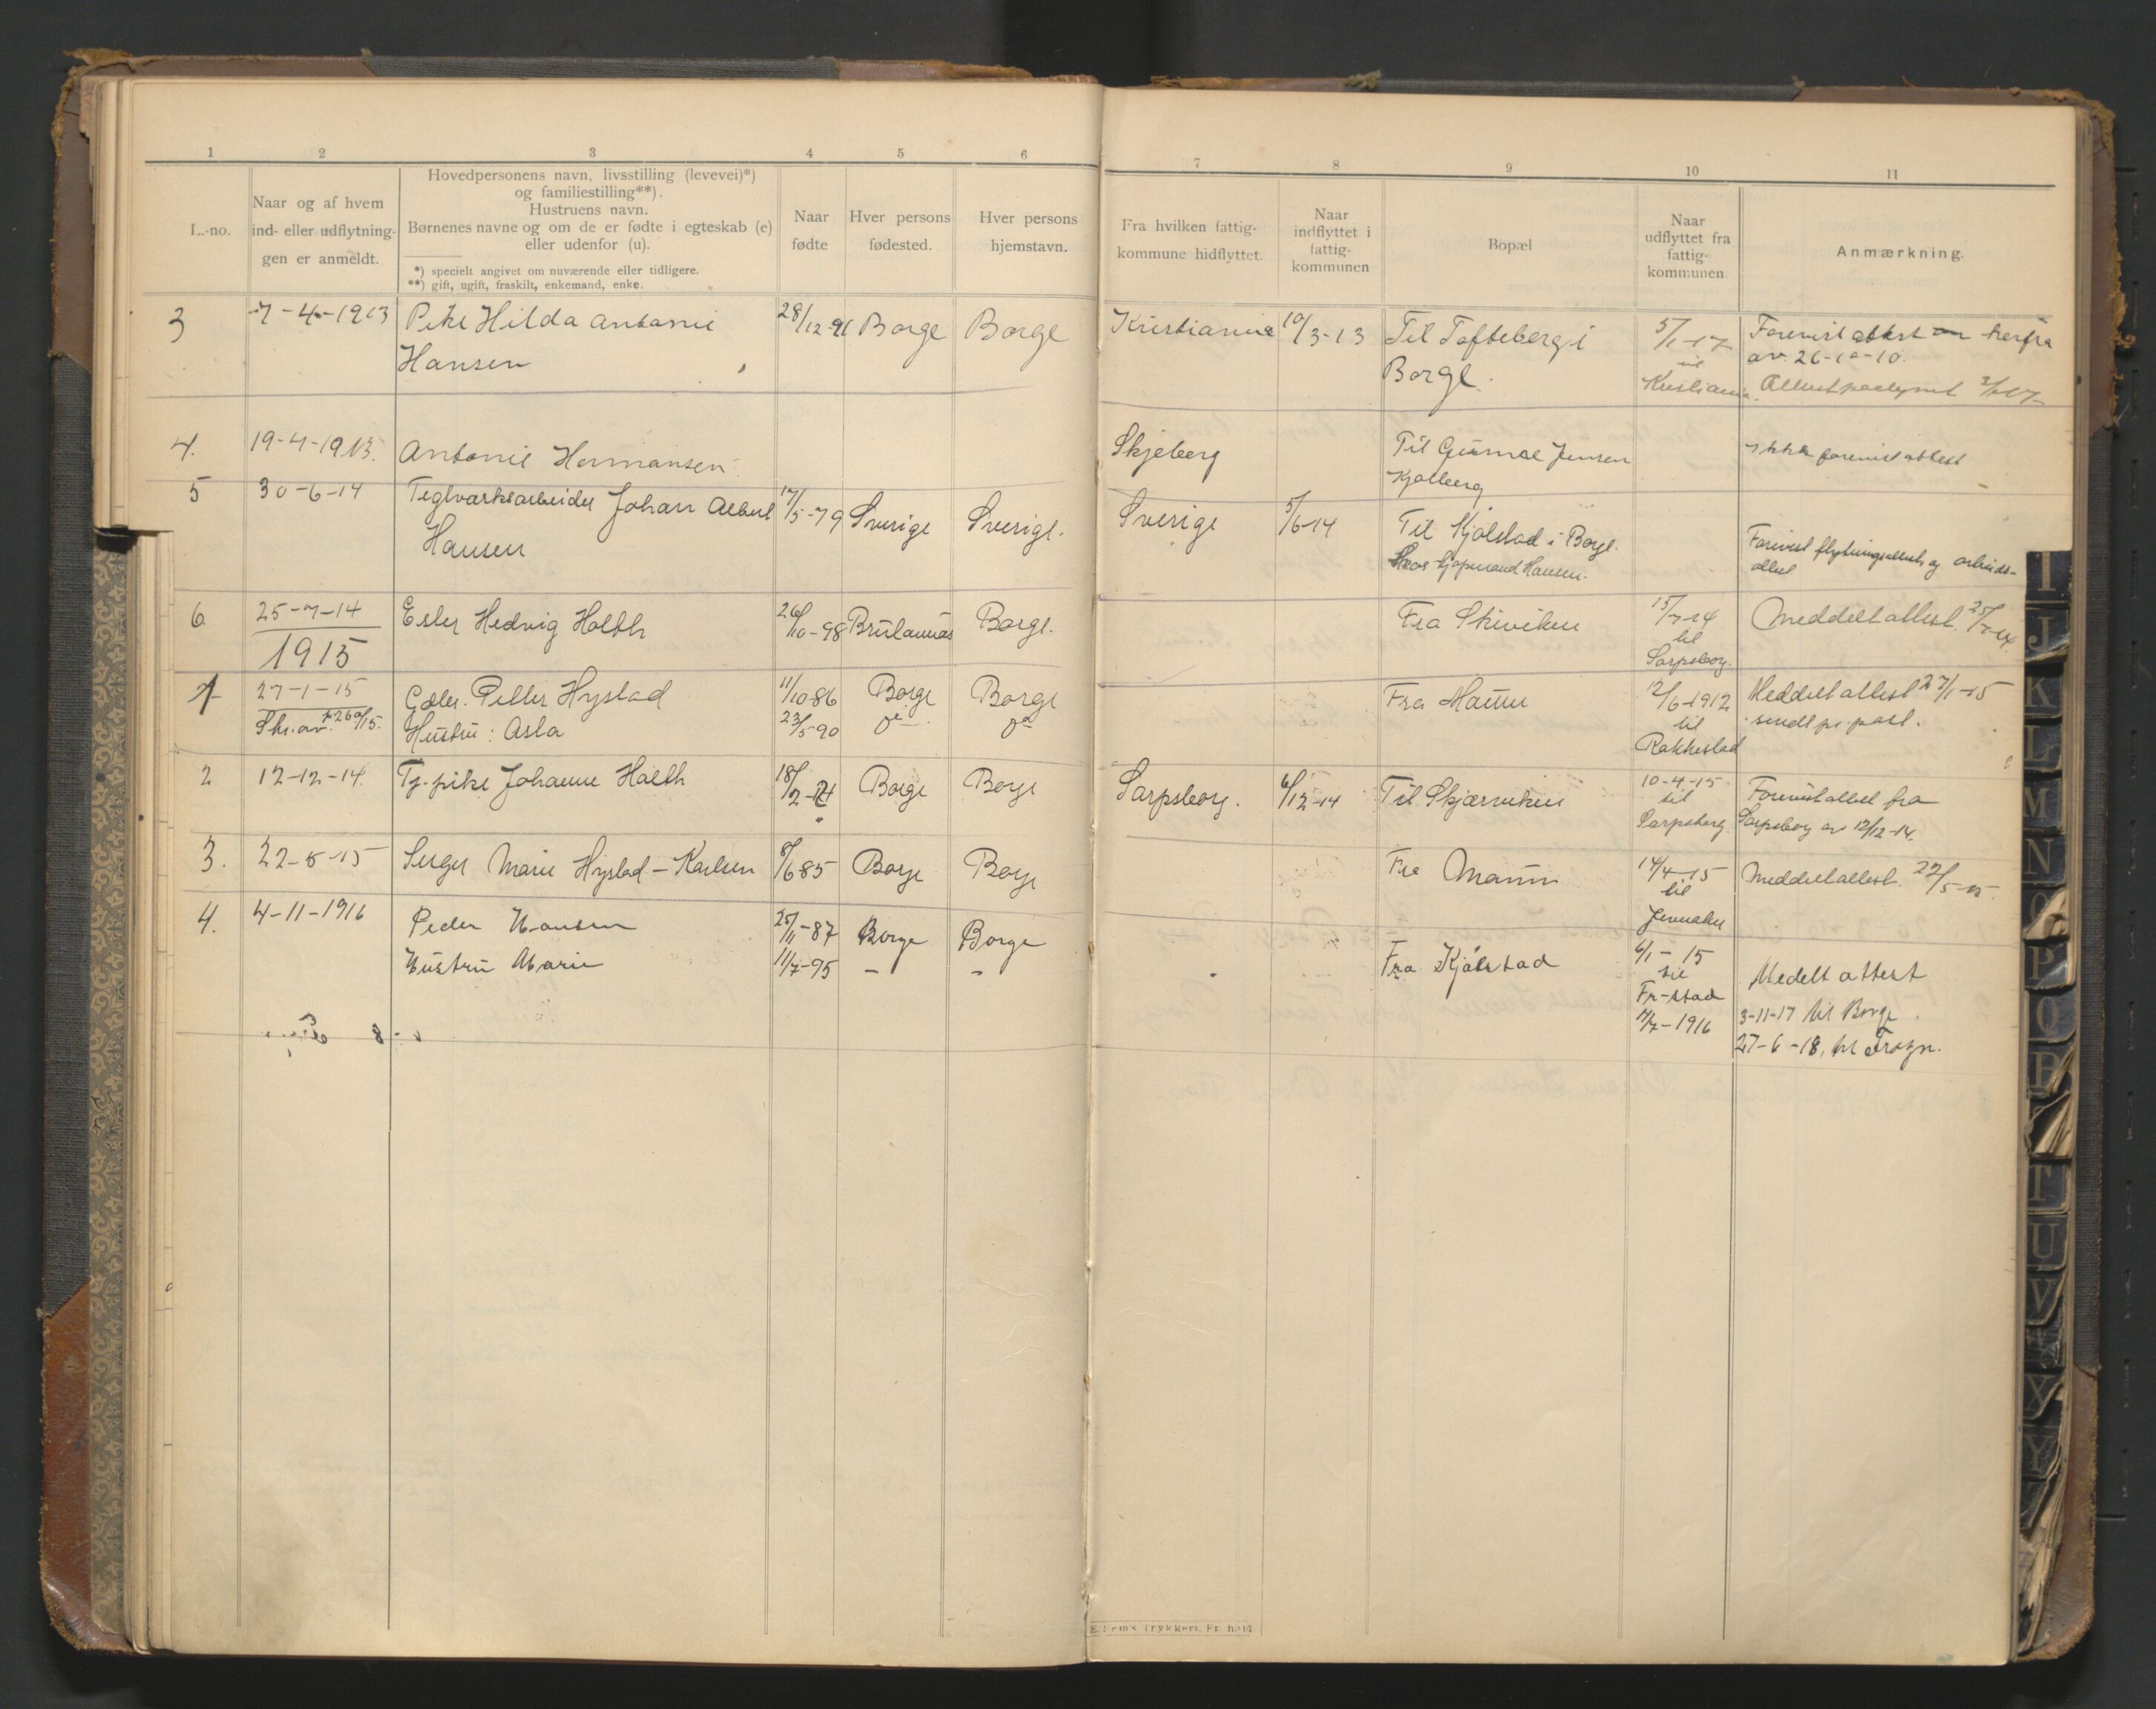 1 2 3 4 5 6 7 8 9 10 11
L.-no.
Naar og af hvem
ind- eller udflytning-
gen er anmeldt.
Hovedpersonens navn, livsstilling (levevei)*)
og familiestilling**).
Hustruens navn.
Børnenes navne og om de er fødte i egteskab (e)
eller udenfor (u).
*) specielt angivet om nuværende eller tidligere.
**) gift, ugift, fraskilt, enkemand, enke.
Naar
fødte
Hver persons
fødested.
Hver persons
hjemstavn.
Fra hvilken fattig-
kommune hidflyttet.
Naar
indflyttet i
fattig-
kommunen
Bopæl
Naar
udflyttet fra
fattig-
kommunen.
Anmærkning.
3 7-4-1913 Pike Hilda Antonie 28/12-91 Borge Borge Kristiania 10/3-13 Til Tofteberg i 5/1-17 Forevist attest herfra
Hansen Borge. til av. 26-10-10.
Kristiania. Attest
4. 19-4-1913. Antonie Hermansen Skjeberg Til Jensen Ikke forevist attest
Kjølberg
5 30-6-14 Teglværksarbeider Johan Albert 17/5-79 Sverige Sverige. Sverige 5/6-14 Til Kjølstad i Borge.
Hansen Hos Hansen. Forevist flytningsattest og arbeids-
attest
6 25-7-14 Hedvig Holth 26/10-98 Borge. Fra Skiviken 15/7-14 Meddelt attest. 25/7-14
til
Sarpsborg.
1915
1 27-1-15 Petter Hystad 11/10 86 Borge Borge Fra Maum 12/6-1912 Meddelt attest 27/1-15
Skr. av. 26/1 15. Hustru: Asla 23/5-90 do do til sendt pr. post.
Rakkestad
2 12-12-14. Tj. pike Johanne Holth 18/2- Borge Borge Sarpsborg. 6/12-14 Til Skjærviken 10-4-15 Forevist attest fra
til
Sarpsborg. Sarpsborg av 12/12-14.
3. 22-5-15 Marie Hystad-Karlsen 8/6 85 Borge Borge Fra Maum 14/4-15 Meddelt attest. 22/5-15.
til
4. 4-11-1916 Peder Hansen 25/11-87 Borge Borge Fra Kjølstad 6/1-15 Medelt attest
Hustru Marie 11/7-95 - - til
Fr-stad
11/7-1916 3-11-17 til Borge.
27-6-18, til Frogn.
I
J
K
L
M
N
O
P
Q
R
T
U
V
X
Y